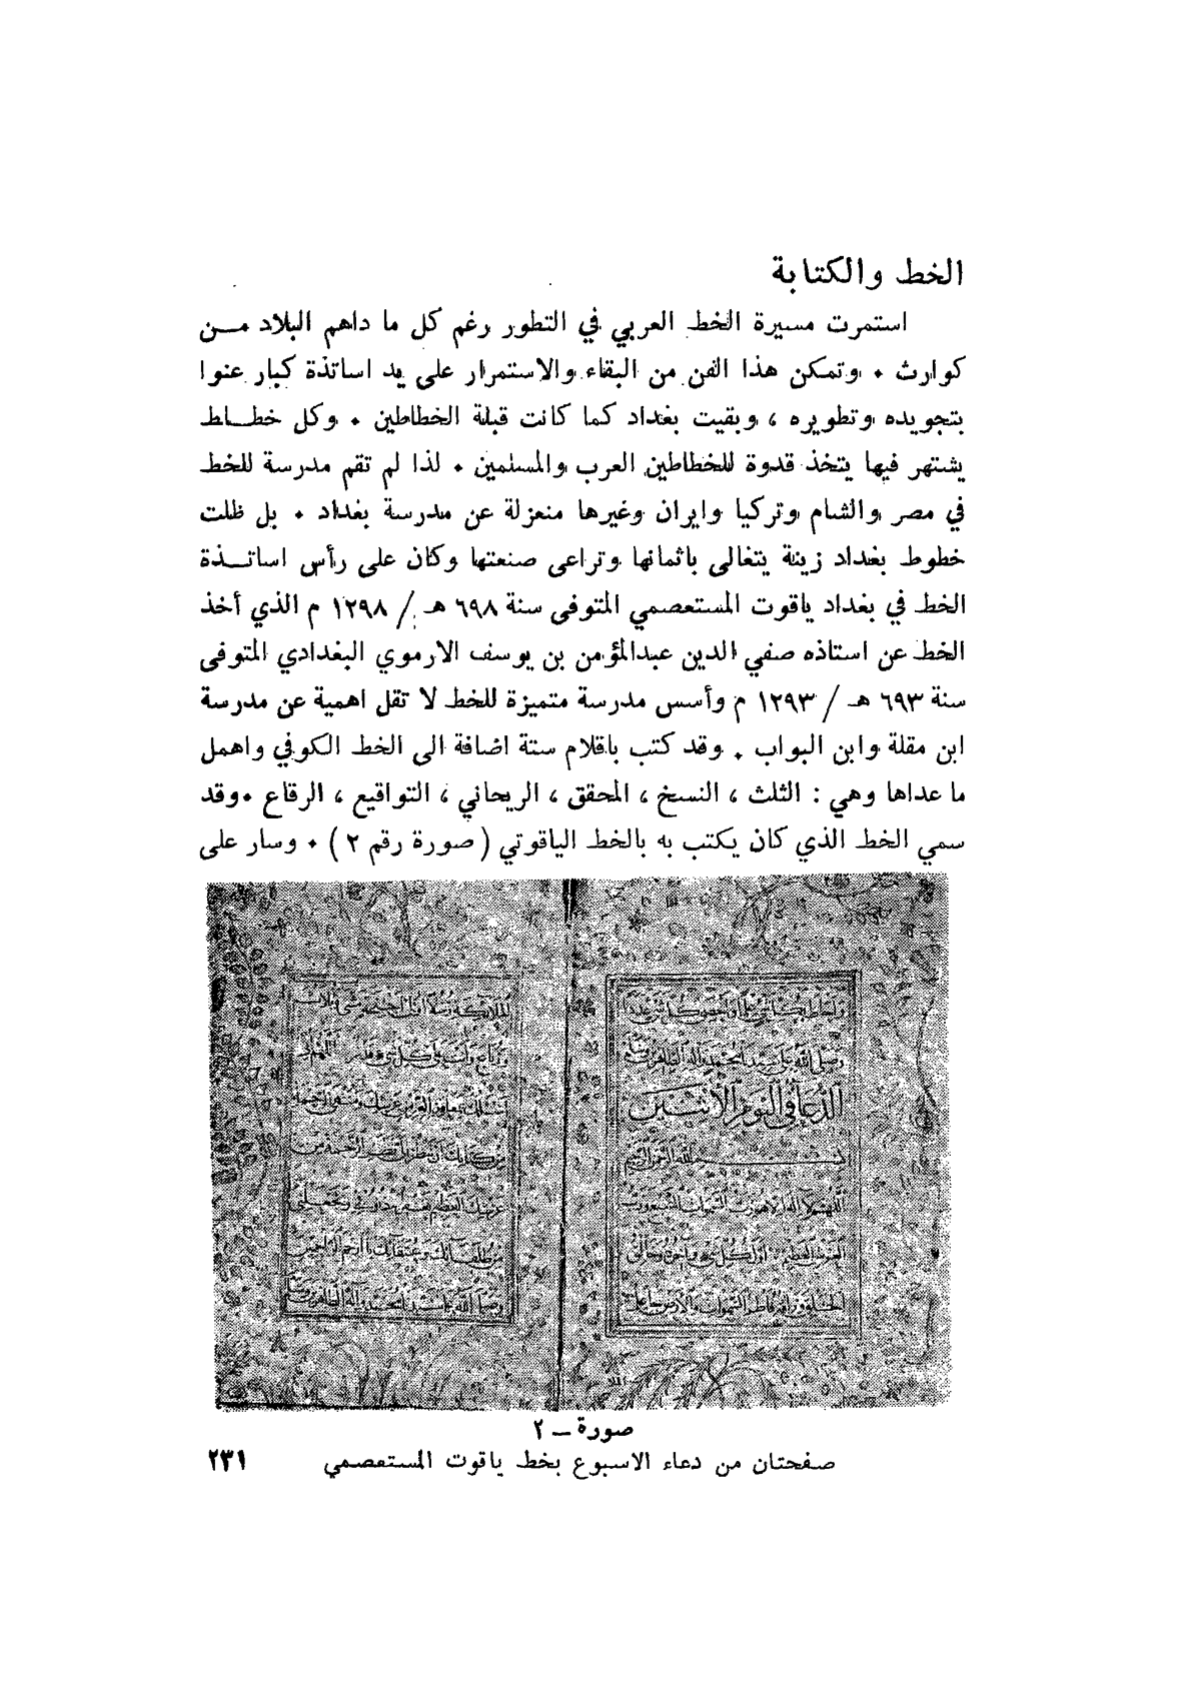 الخط والكتابة
استمرت مسيرة الخط العربي في التطور رغم كل ما داهم البلاد مــن
كوارث ٠ وتمكن هذا الفن من البقاء والاستمرار على يد اساتذة كبار عنوا
بتجويده وتطويره ، وبقيت بغداد كما كانت قبلة الخطاطين ٠ وكل خطــاط
يشتهر فيها يتخذ قدوة للخطاطين العرب والمسلمين ٠ لذا لم تقم مدرسة للخط
في مصر والشام وتركيا وايران وغيرها منعزلة عن مدرسة بغداد ٠ بل ظلت
خطوط بغداد زينة يتغالى باثمانها وتراعى صنعتها وكان على رأس اساتــذة
الخط في بغداد ياقوت المستعصمي المتوفى سنة ٦٩٨ هـ / ١٢٩٨ م الذي أخذ
الخط عن استاذه صفي الدين عبدالمؤمن بن يوسف الارموي البغدادي المتوفى
سنة ٦٩٣ هـ / ١٢٩٣ م وأسس مدرسة متميزة للخط لا تقل اهمية عن مدرسة
ابن مقلة وابن البواب . وقد كتب باقلام ستة اضافة الى الخط الكوفي واهمل
ما عداها وهي : الثلث ، النسخ ، المحقق ، الريحاني ، التواقيع ، الرقاع ٠وقد
سمي الخط الذي كان يكتب به بالخط الياقوتي ( صورة رقم ٢ ) ٠ وسار على
وصلى الله على سيدنا محمد وآله الطاهرين
الدعا في اليوم الاثنين
بسم الله الرحمن الرحيم
صورة ــ ٢
صفحتان من دعاء الاسبوع بخط ياقوت المستعصمي
٢٣١